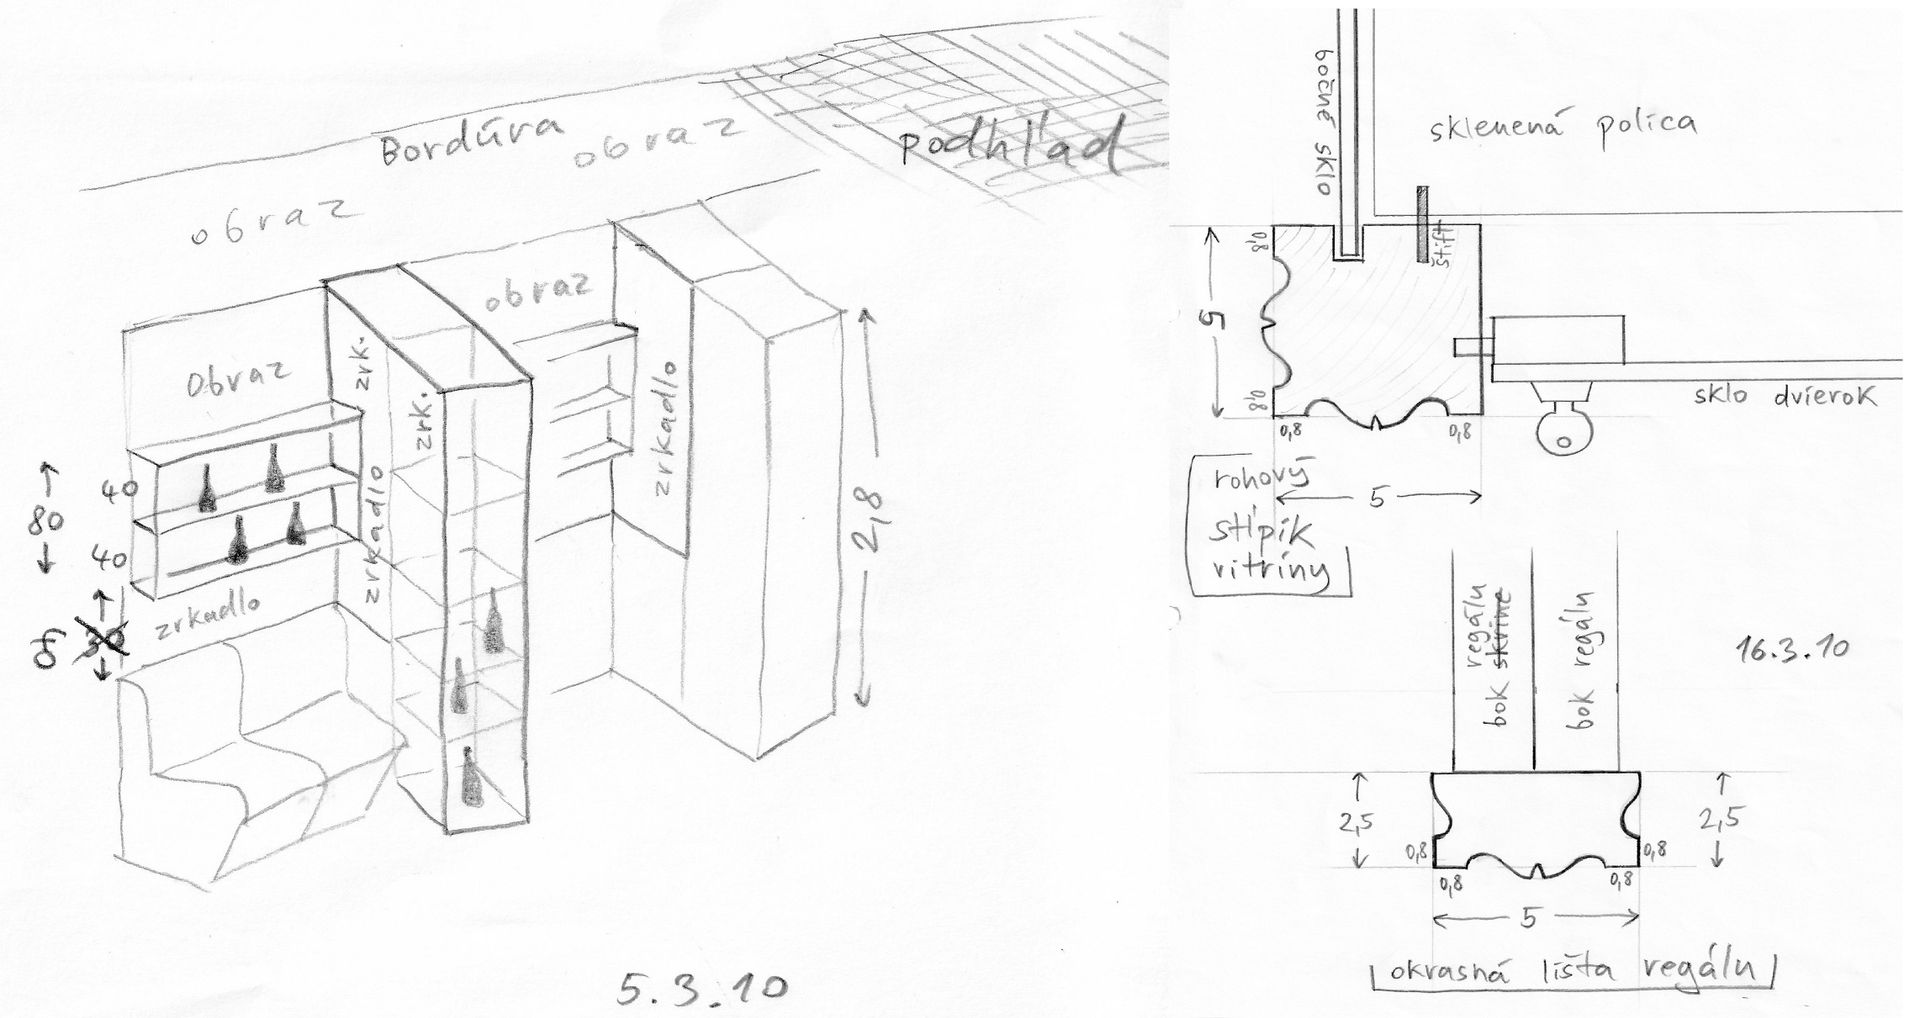 Bordúra
obraz
podhľad
obraz
obraz
obraz
zrk.
zrk.
zrkadlo
zrkadlo
40
80
40
zrkadlo
2,8
5.3.10
bočné sklo
sklenená polica
štift
0,8
5
0,8
0,8
0,8
sklo dvierok
5
rohový
stĺpik
vitríny
bok skrine
regálu
bok regálu
16.3.10
2,5
2,5
0,8
0,8
0,8
0,8
5
okrasná lišta regálu